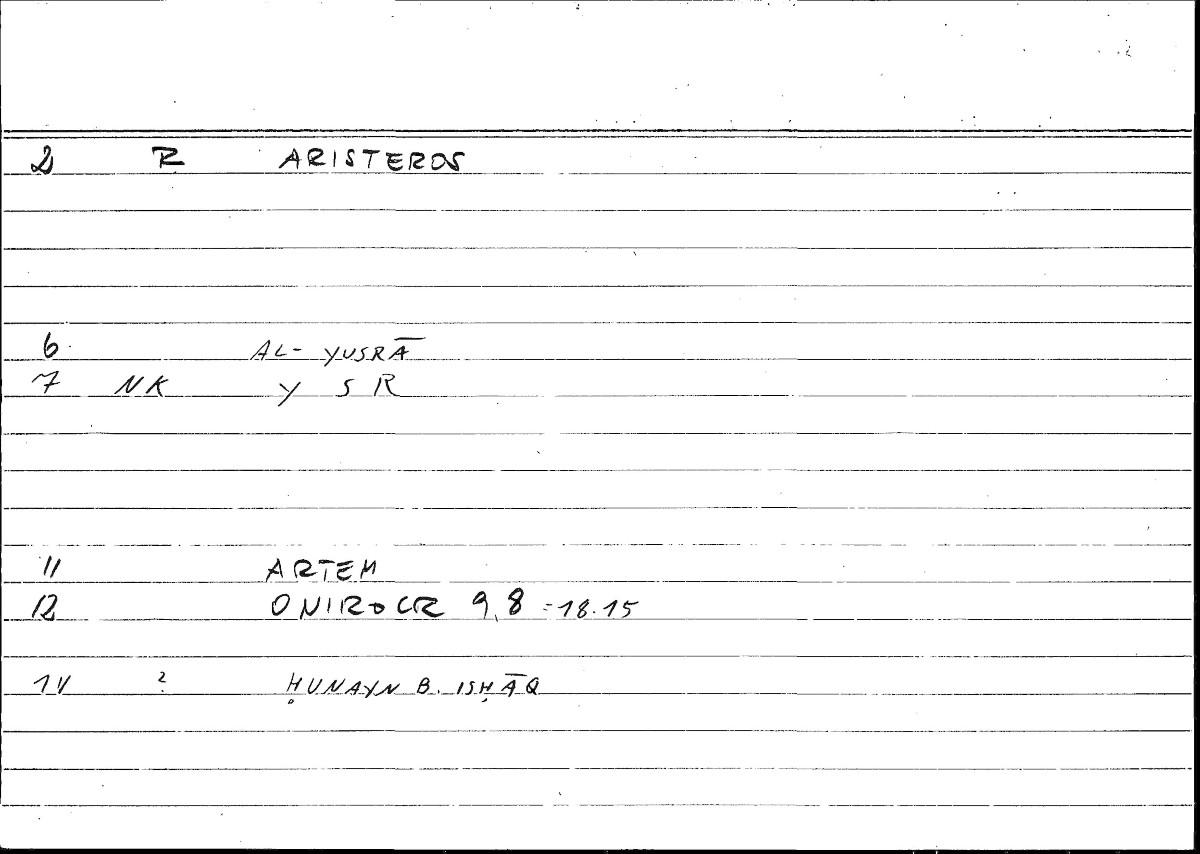 2 R ARISTEROS
6 AL- YUSRĀ
7 NK Y S R
11 ARTEM
12 ONIROCR 9,8 =18.15
14 ? ḤUNAYN B. ISḤĀQ